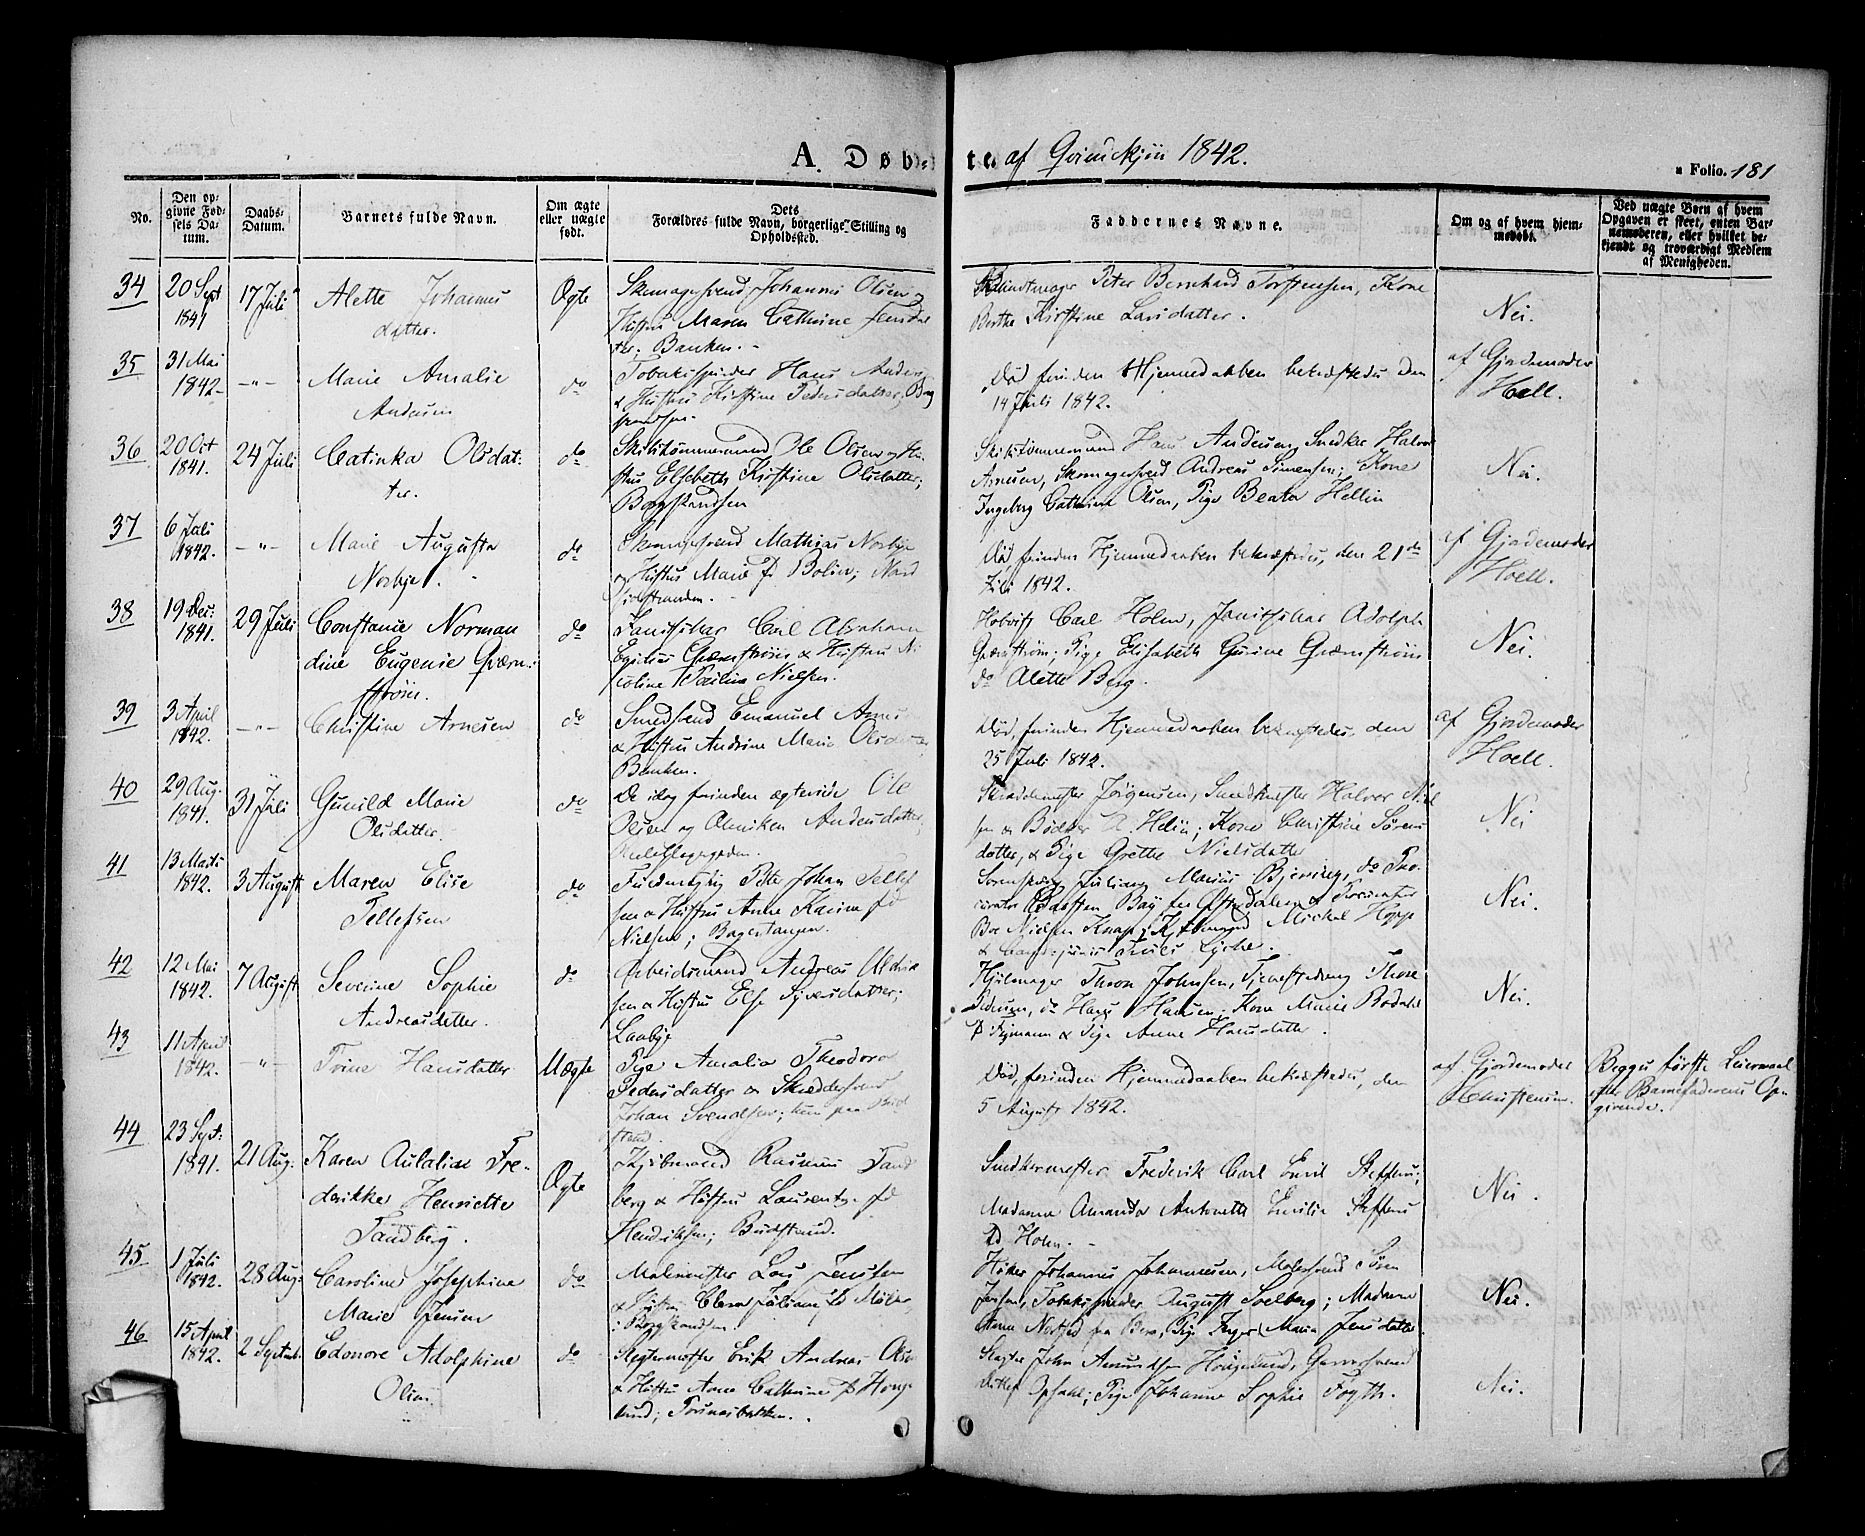 A. Døbte af Qvindekjøn 1842.
a Folio. 181
No.
Den op-
givne Fød-
sels Da-
tum.
Daabs-
Datum.
Barnets fulde Navn.
Om ægte
eller uægte
født.
Dets
Forældres fulde Navn, borgerlige Stilling og
Opholdssted.
Faddernes Navne.
Om og af hvem hjem-
medøbt.
Ved uægte Børn af hvem
Opgaven er skeet, enten Bar-
nemoderen, eller hvilket be-
kjendt og troværdigt Medlem
af Menigheden.
34
20 Sept
1841
17 Juli
Alette Johannes
datter.
Ægte
Skomagersvend Johannes Olsen og
Hustru Maren Cathrine Jensdat
ter; Banken.
Peter Bernhard Torstensen, Kone
Berthe Kirstine Larsdatter.
Nei.
35
31 Mai
1842
-"-
Marie Amalie
Andersen
do
Tobakspinder Hans Anders
& Hustru Kirstine Pedersdatter; Bag
Død, forinden Hjemmedaaben bekræftedes den
14 Juli 1842.
af Gjordemoder
Hoell.
36
20 Oct
1841.
24 Juli
Catinka Olsdat-
ter.
do
Skibstømmermand Ole Olsen og Hu-
stru Elsebeth Kirstine Olsdatter;
Bagstrandsen
Skibstømmermand Hans Andersen, Snedker Halvor
Arnesen, Skomagersvend Andreas Simensen; Kone
Ingeborg Cathrine Olsen, Pige Beata Hellin
Nei.
37
6 Juli
1842.
-"-
Marie Augusta
Norbye.
do
Skomagersvend Mathias Norbye
og Hustru Marie fd Bolin; Nord
Død, forinden Hjemmedaaben bekræftedes, den 21de
Juli 1842.
af Gjordemoder
Hoell.
38
19 Dec:
1841.
29 Juli
Constance Norman
dine Eugenie Qværn-
strøm.
do
Carl Abraham
Egilius Qværnstrøm & Hustru Ni
coline Paulin Nielsen.
Carl Holm, Adolph
Qværnstrøm; Pige Elisabeth Gurine Qværnstrøm
do Alette Berg.
Nei.
39
3 April
1842.
-"-
Christine Arnesen
do
Smedsvend Emanuel Arnes
& Hustru Andrine Marie Olsdatter
Banken.
Død, forinden Hjemmedaaben bekræftedes, den
25 Juli 1842.
af Gjordemoder
Hoell.
40
29 Aug.
1841.
31 Juli
Gunild Marie
Olsdatter.
do
De idag forinden ægteviede Ole
Olsen og Anniken Andersdatter;
Skræddermester Jörgensen, Halvor Niel
sen & Bødker A. Helin; Kone Christine Sørens
datter, & Pige Grethe Nielsdatter
Nei
41
13 Marts
1842.
3 August
Maren Elise
Tellefsen
do
Peter Johan Tellef
sen & Hustru Anne Karine fd
Nielsen; Bagertangen.
Sorenskriver Juliam Marius Bjerring, do Pro-
curator Carsten Bay fra Østerdalen & Procurator
Boe Nielsen Knap; Kjøbmand Michal Hopp
Nei.
42
12 Mai
1842.
7 August
Severine Sophie
Andreasdatter.
do
Arbeidsmand Andreas Uldrik
sen & Hustru Else Syversdatter;
Hjulmager Thron Johnsen, Tjenestedreng Thore
Pedersen, do Hans Hansen; Kone Marie Rodahl
fd Tejmann & Pige Anne Hansdatter.
Nei.
43
11 April
1842.
-"-
Trine Hansdatter
Uægte
Pige Amalia Theodora
Pedersdatter & Skræddersvend
Johan Svendsen; hun paa Bud
strand.
Død, forinden Hjemmedaaben bekræftedes, den
5 August 1842.
af Gjordemoder
Christensen.
Begges første Leiermaal
efter Barnefaderens Op-
givende.
44
23 Sept:
1841.
21 Aug:
Karen Aulalise Fre-
derikke Henriette
Sandberg.
Ægte
Kjøbmand Rasmus Sand
berg & Hustru Laurentze fd
Hendriksen; Budstrand.
Snedkermester Frederik Carl Emil Steffens;
Madame Amanda Antonette Emilie Steffens
fd Holm.
Nei.
45
1 Juli
1842.
28 Aug:
Caroline Josephine
Marie Jensen
do
Malermester Lars Jensen
& Hustru Elen Juliane fd Møller
Høker Johannes Johannesen, Malersvend Søren
Jensen, Tobakspinder August Soelberg; Madame
Anne Nordsted fra Bera, Pige Inger Maria Jensdatter
Nei.
46
15 April
1842.
2 Septemb.
Edonore Adolphine
Olsen
do
Slagtermester Erik Andreas Olsen
& Hustru Anne Cathrine fd Houge
lund; Torsnesbakken.
Slagter John Amundsen Haugelund, Garversvend
Opsahl; Pige Johanne Sophie Fogth.
Nei.